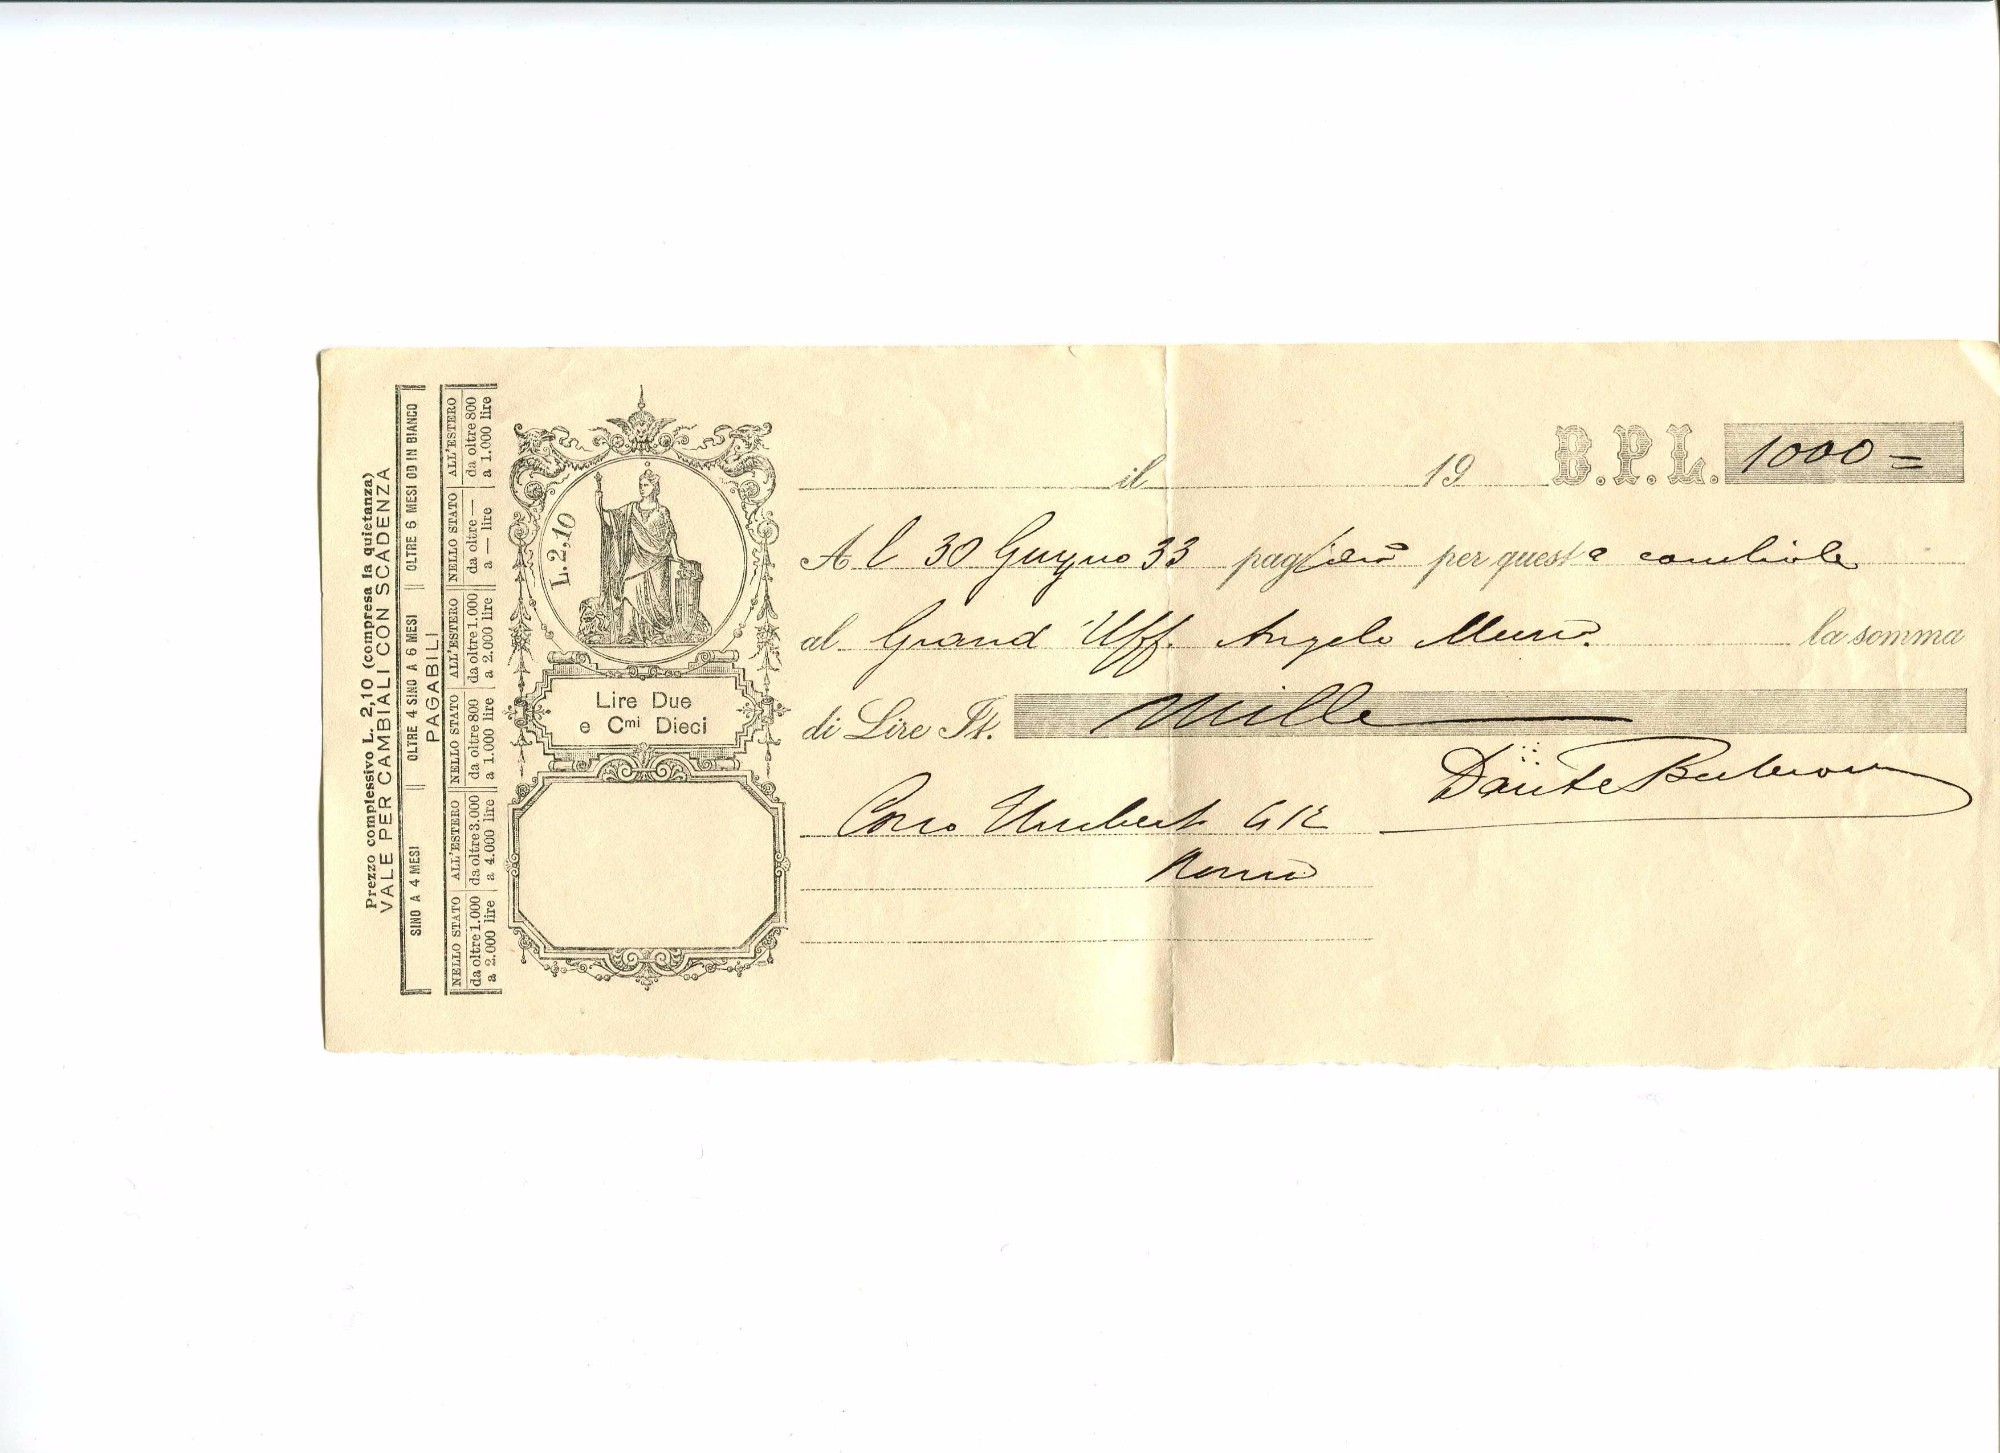 Prezzo complessivo L. 2,10 (compresa la quietanza)
VALE PER CAMBIALI CON SCADENZA
SINO A 4 MESI || OLTRE 4 SINO A 6 MESI || OLTRE 6 MESI OD IN BIANCO
PAGABILI
NELLO STATO | ALL'ESTERO | NELLO STATO | ALL'ESTERO | NELLO STATO | ALL'ESTERO
da oltre 1.000 | da oltre 3.000 | da oltre 800 | da oltre 1.000 | da oltre — | da oltre 800
a 2.000 lire | a 4.000 lire | a 1.000 lire | a 2.000 lire | a — lire | a 1.000 lire
L. 2,10
Lire Due
e Cmi Dieci
il 19 B.P.L. 1000 =
Al 30 Giugno 33 pagherò per questa cambiale
al Grand Uff. Angelo la somma
di Lire It. Mille
Dante
Corso Umberto
Roma